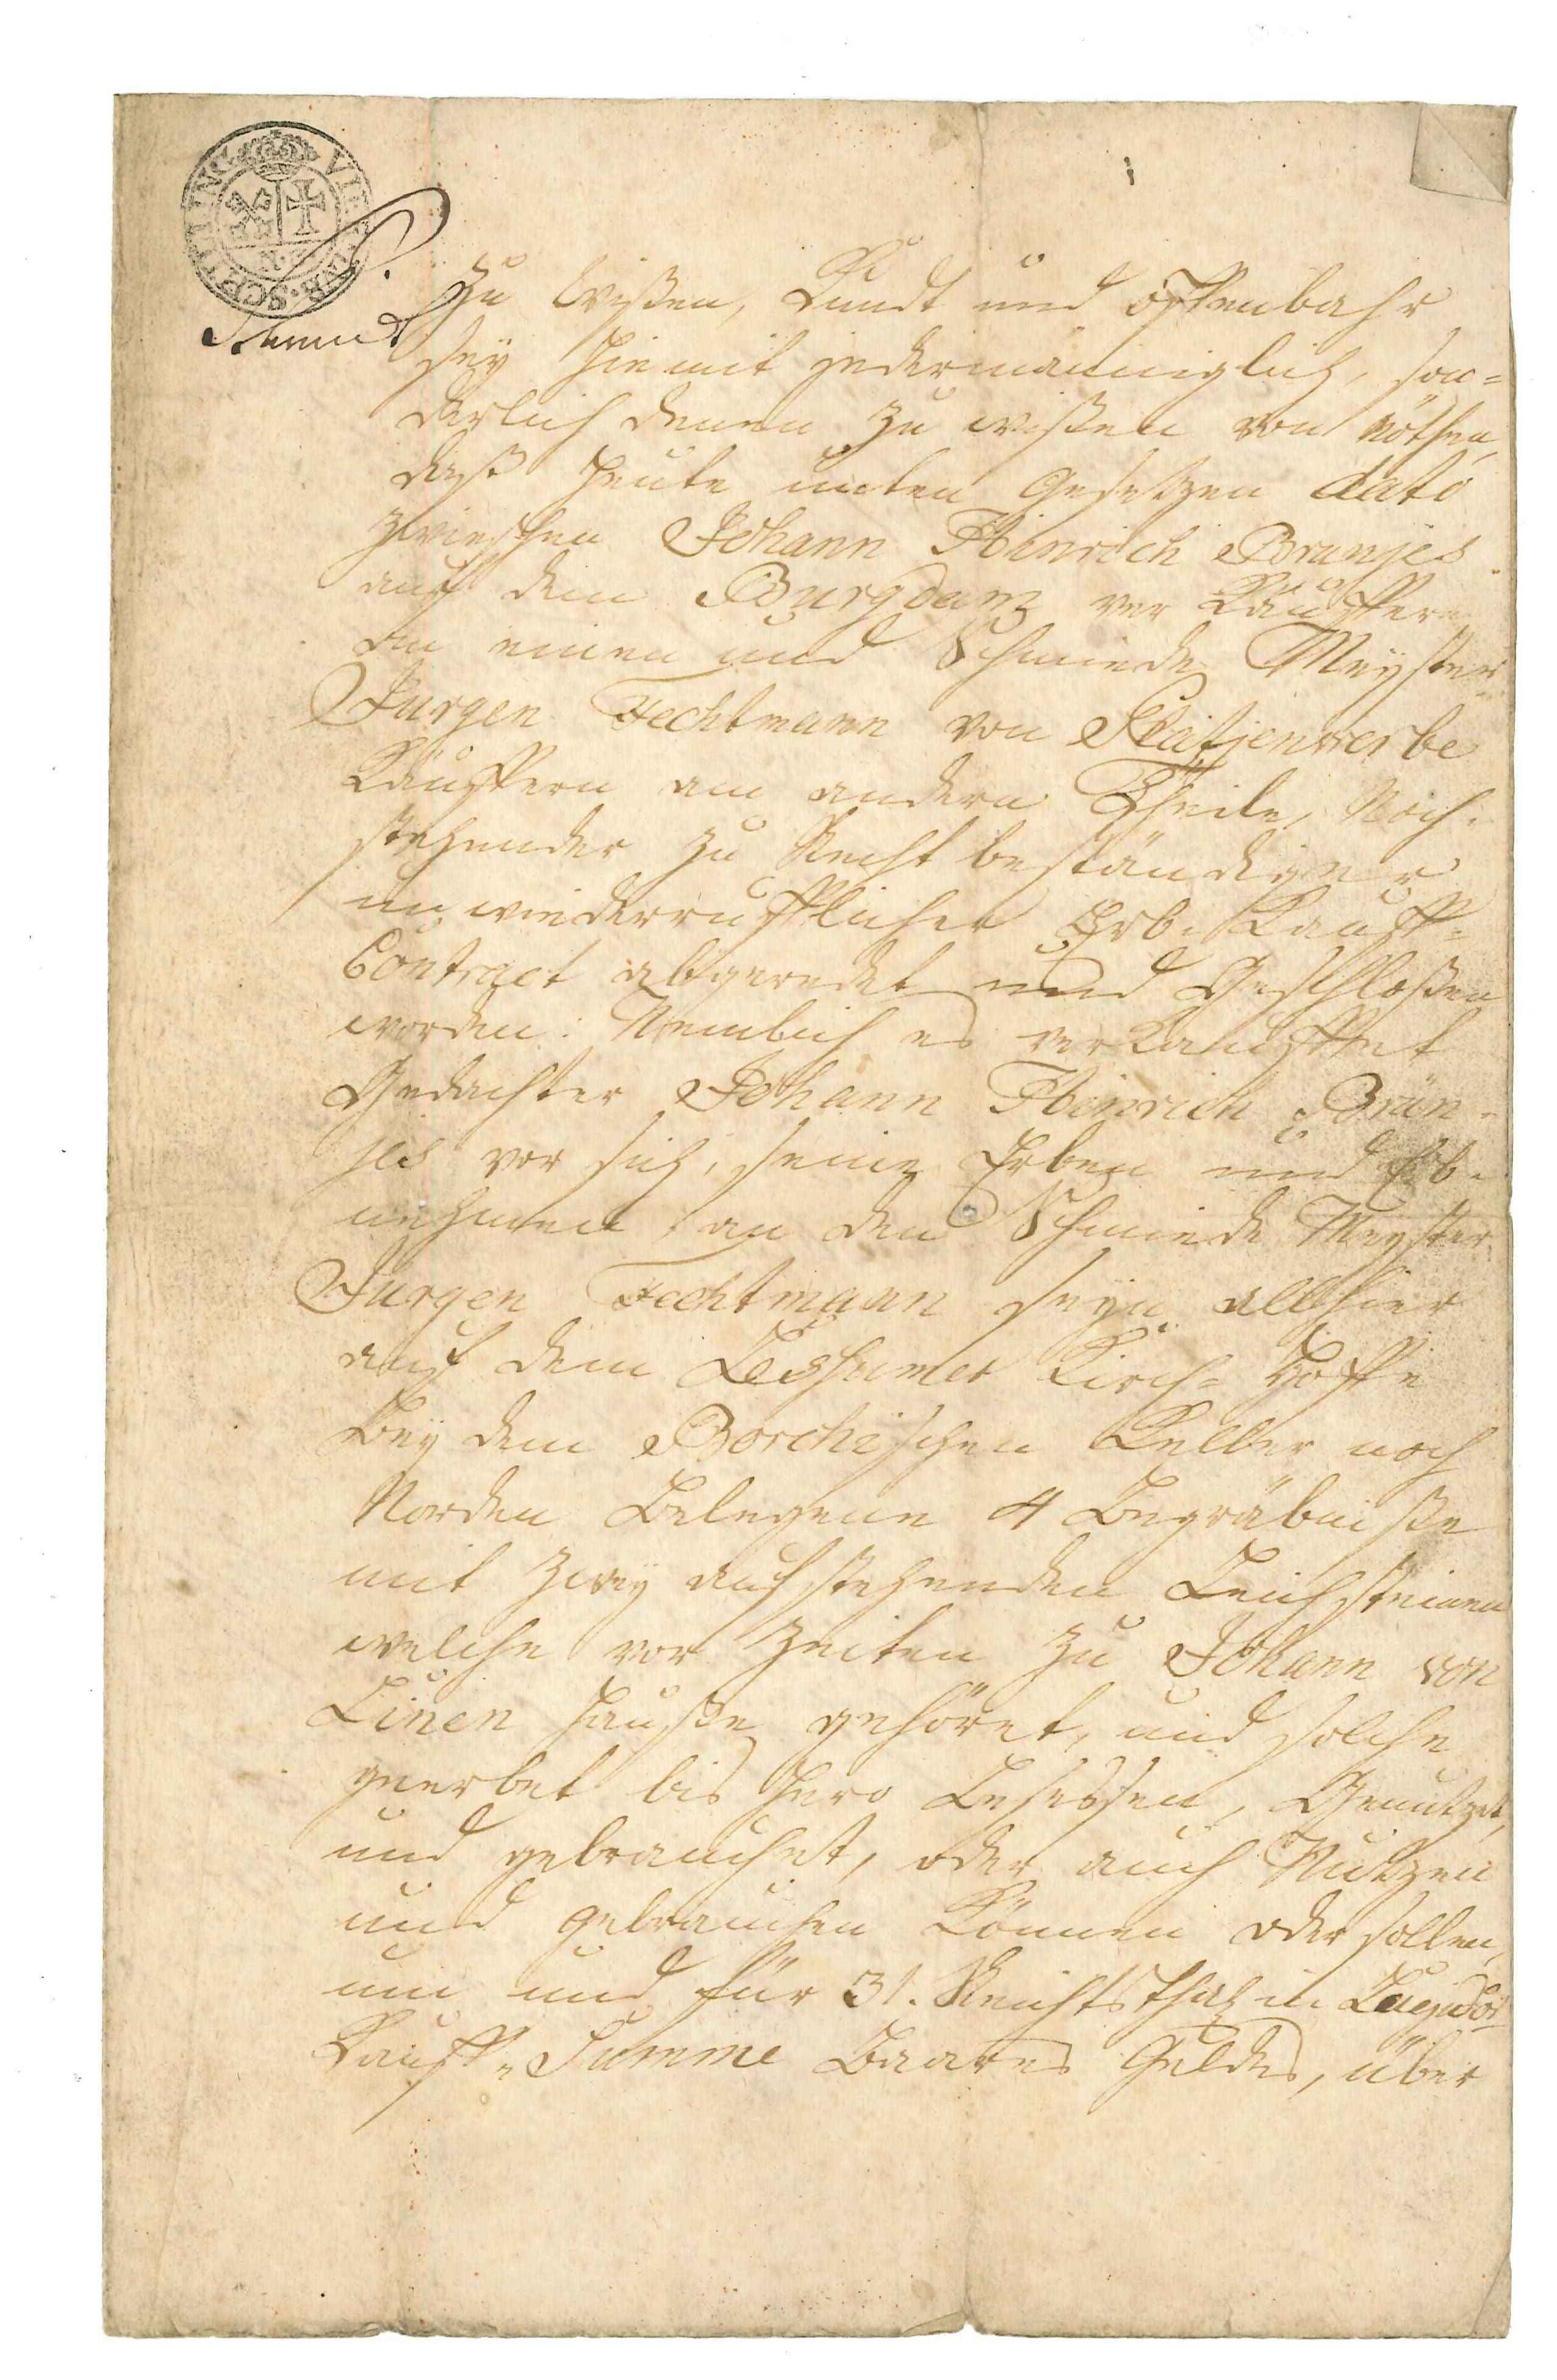 VIERTER SCRIFTUNG
N. 3.
Zu wißen, Kundt und offenbahr
sey hiemit jedermänniglich, son=
derlich denen zu wißen von nöthen,
daß heute unten gesetzen dato
zwieschen Johann Hinrich Brunjes
auf dem Burgdam ver Käuffern
an einen und Schmiede Meyster
Jurgen Fechtmann von Platjenwerbe
Käuffern am andern Theile, Nach=
stehender zu Recht beständiger
un wiederrufflicher Erb= Kauff=
Contract abgeredet und Geschloßen
worden: Nemlich es verkauffet
Gedachter Johann Hinrich Brün=
jes vor sich, seine Erben und Erb=
nehmen, an den Schmiede Meyster
Jurgen Fechtmann seyn allhier
auf dem Leshumer Kirch= Hoffe
Bey dem Borchischen Keller nach
Norden Belegene 4 Begräbniße
mit zwey aufstehenden Leichsteinen
welche vor Zeiten zu Johann von
Lünen Hauße gehöret, und solche
geerbet bis hero Besessen, Genutzet,
und gebrauchet, oder auch Nutzen
und gebrauchen können oder sollen,
um und für 31. Reichsthlr in Lugidor
Kauff= Summe Baares Geldes, über